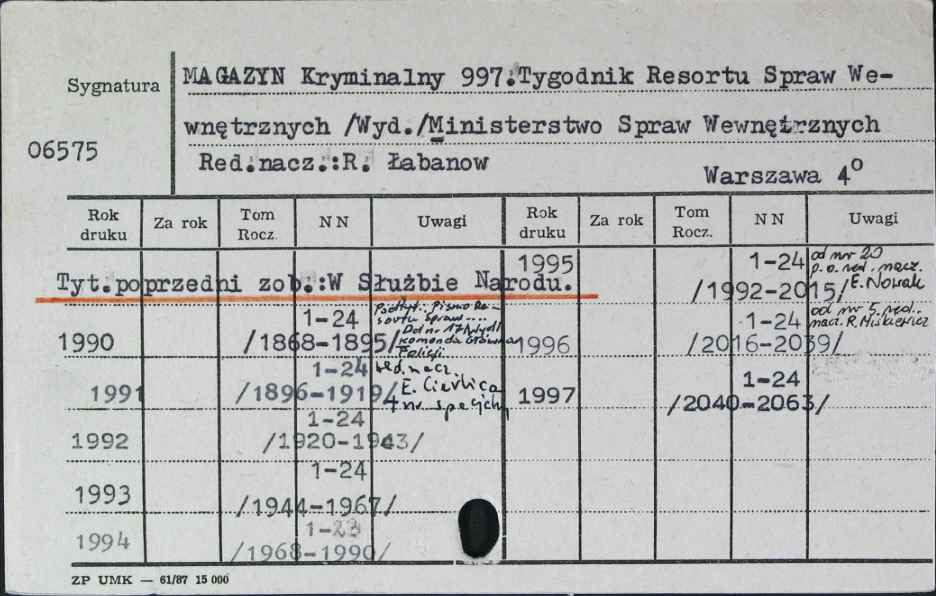 Sygnatura
MAGAZYN Kryminalny 997.Tygodnik Resortu Spraw We-
wnętrznych /Wyd./Ministerstwo Spraw Wewnętrznych
06575
Red.nacz.:R. Łabanow
Warszawa 4º
Rok druku Za rok Tom Rocz. N N Uwagi Rok druku Za rok Tom Rocz. N N Uwagi
Tyt.poprzedni zob.:W Służbie Narodu.
1990 1-24 /1868-1895/ Podtyt.: Pismo Re-
sortu Spraw....
Od nr 17 Wyd/
Komenda Główna
Policji
1991 1-24 /1896-1919/ red. nacz.
E. Cierlica
+ nr specjalny
1992 1-24 /1920-1943/
1993 1-24 /1944-1967/
1994 1-23 /1968-1990/
1995 1-24 /1992-2015/ od nr 20
p.o. red. nacz.
E. Nowak
1996 1-24 /2016-2039/ od nr 5. red.
nacz. R. Miśkiewicz
1997 1-24 /2040-2063/
ZP UMK — 61/87 15 000